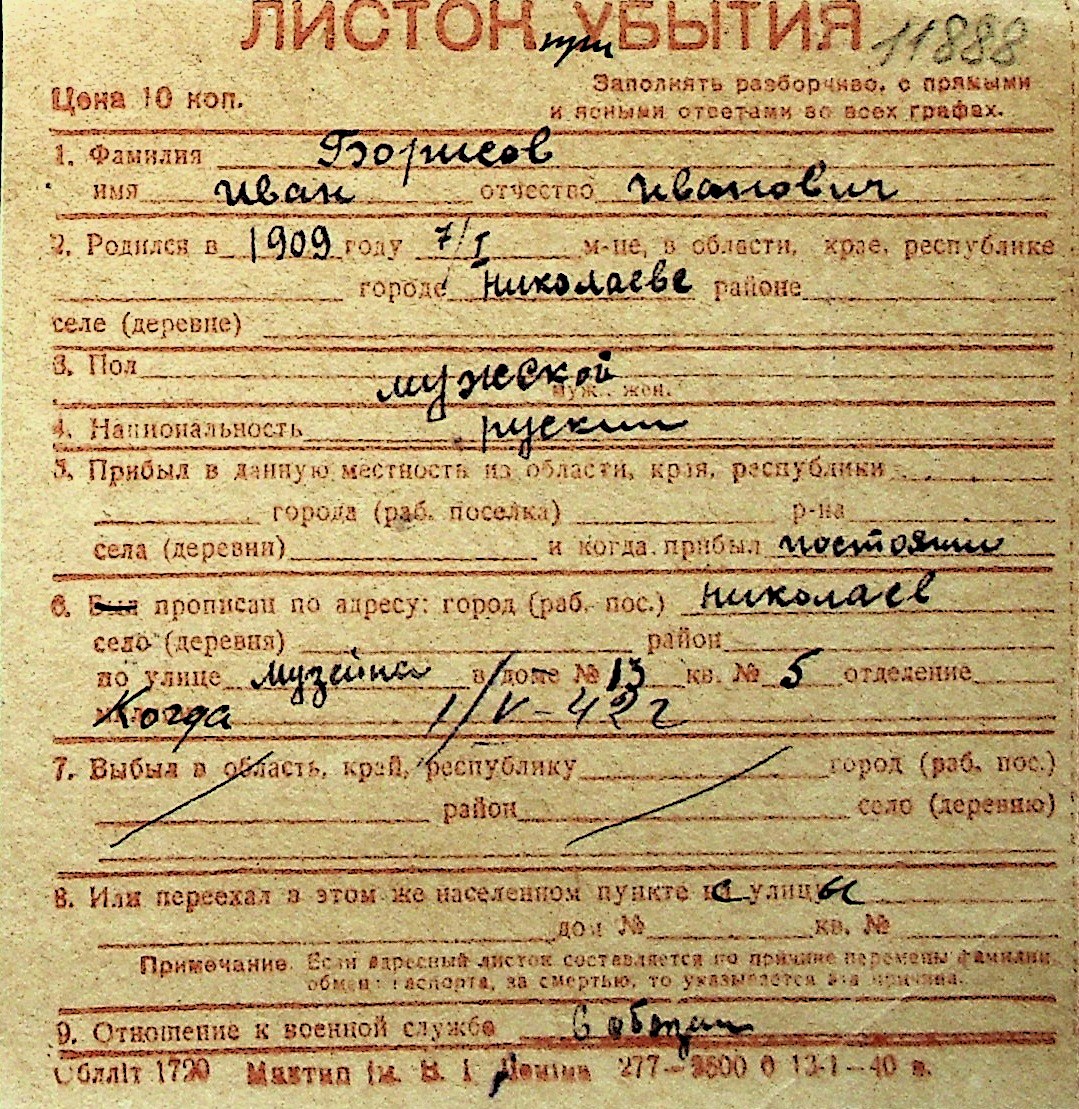 ЛИСТОК УБЫТИЯ 11888
при
Цена 10 коп.
Заполнять разборчиво, с прямыми
и ясными ответами во всех графах.
1. Фамилия Борисов
имя Иван отчество Иванович
2. Родился в 1909 году 7/I м-це, в области, крае, республике
городе Николаеве районе
селе (деревне)
3. Пол мужской
муж., жен.
4. Национальность руский
5. Прибыл в данную местность из области, края, республики
города (раб. поселка) р-на
села (деревни) и когда прибыл
6. Был прописан по адресу: город (раб. пос.) Николаев
село (деревня) район
по улице Музейна в доме № 13 кв. № 5 отделение
Когда 1/V-42 г
7. Выбыл в область, край, республику город (раб. пос.)
район село (деревню)
8. Или переехал в этом же населенном пункте с улицы
дом № кв. №
Примечание. Если адресный листок составляется по причине перемены фамилии,
обмена паспорта, за смертью, то указывается эта причина.
9. Отношение к военной службе
Обллiт 1790 Мактип iм. В. I. Ленiна 277—3500 0 13-1—40 в.